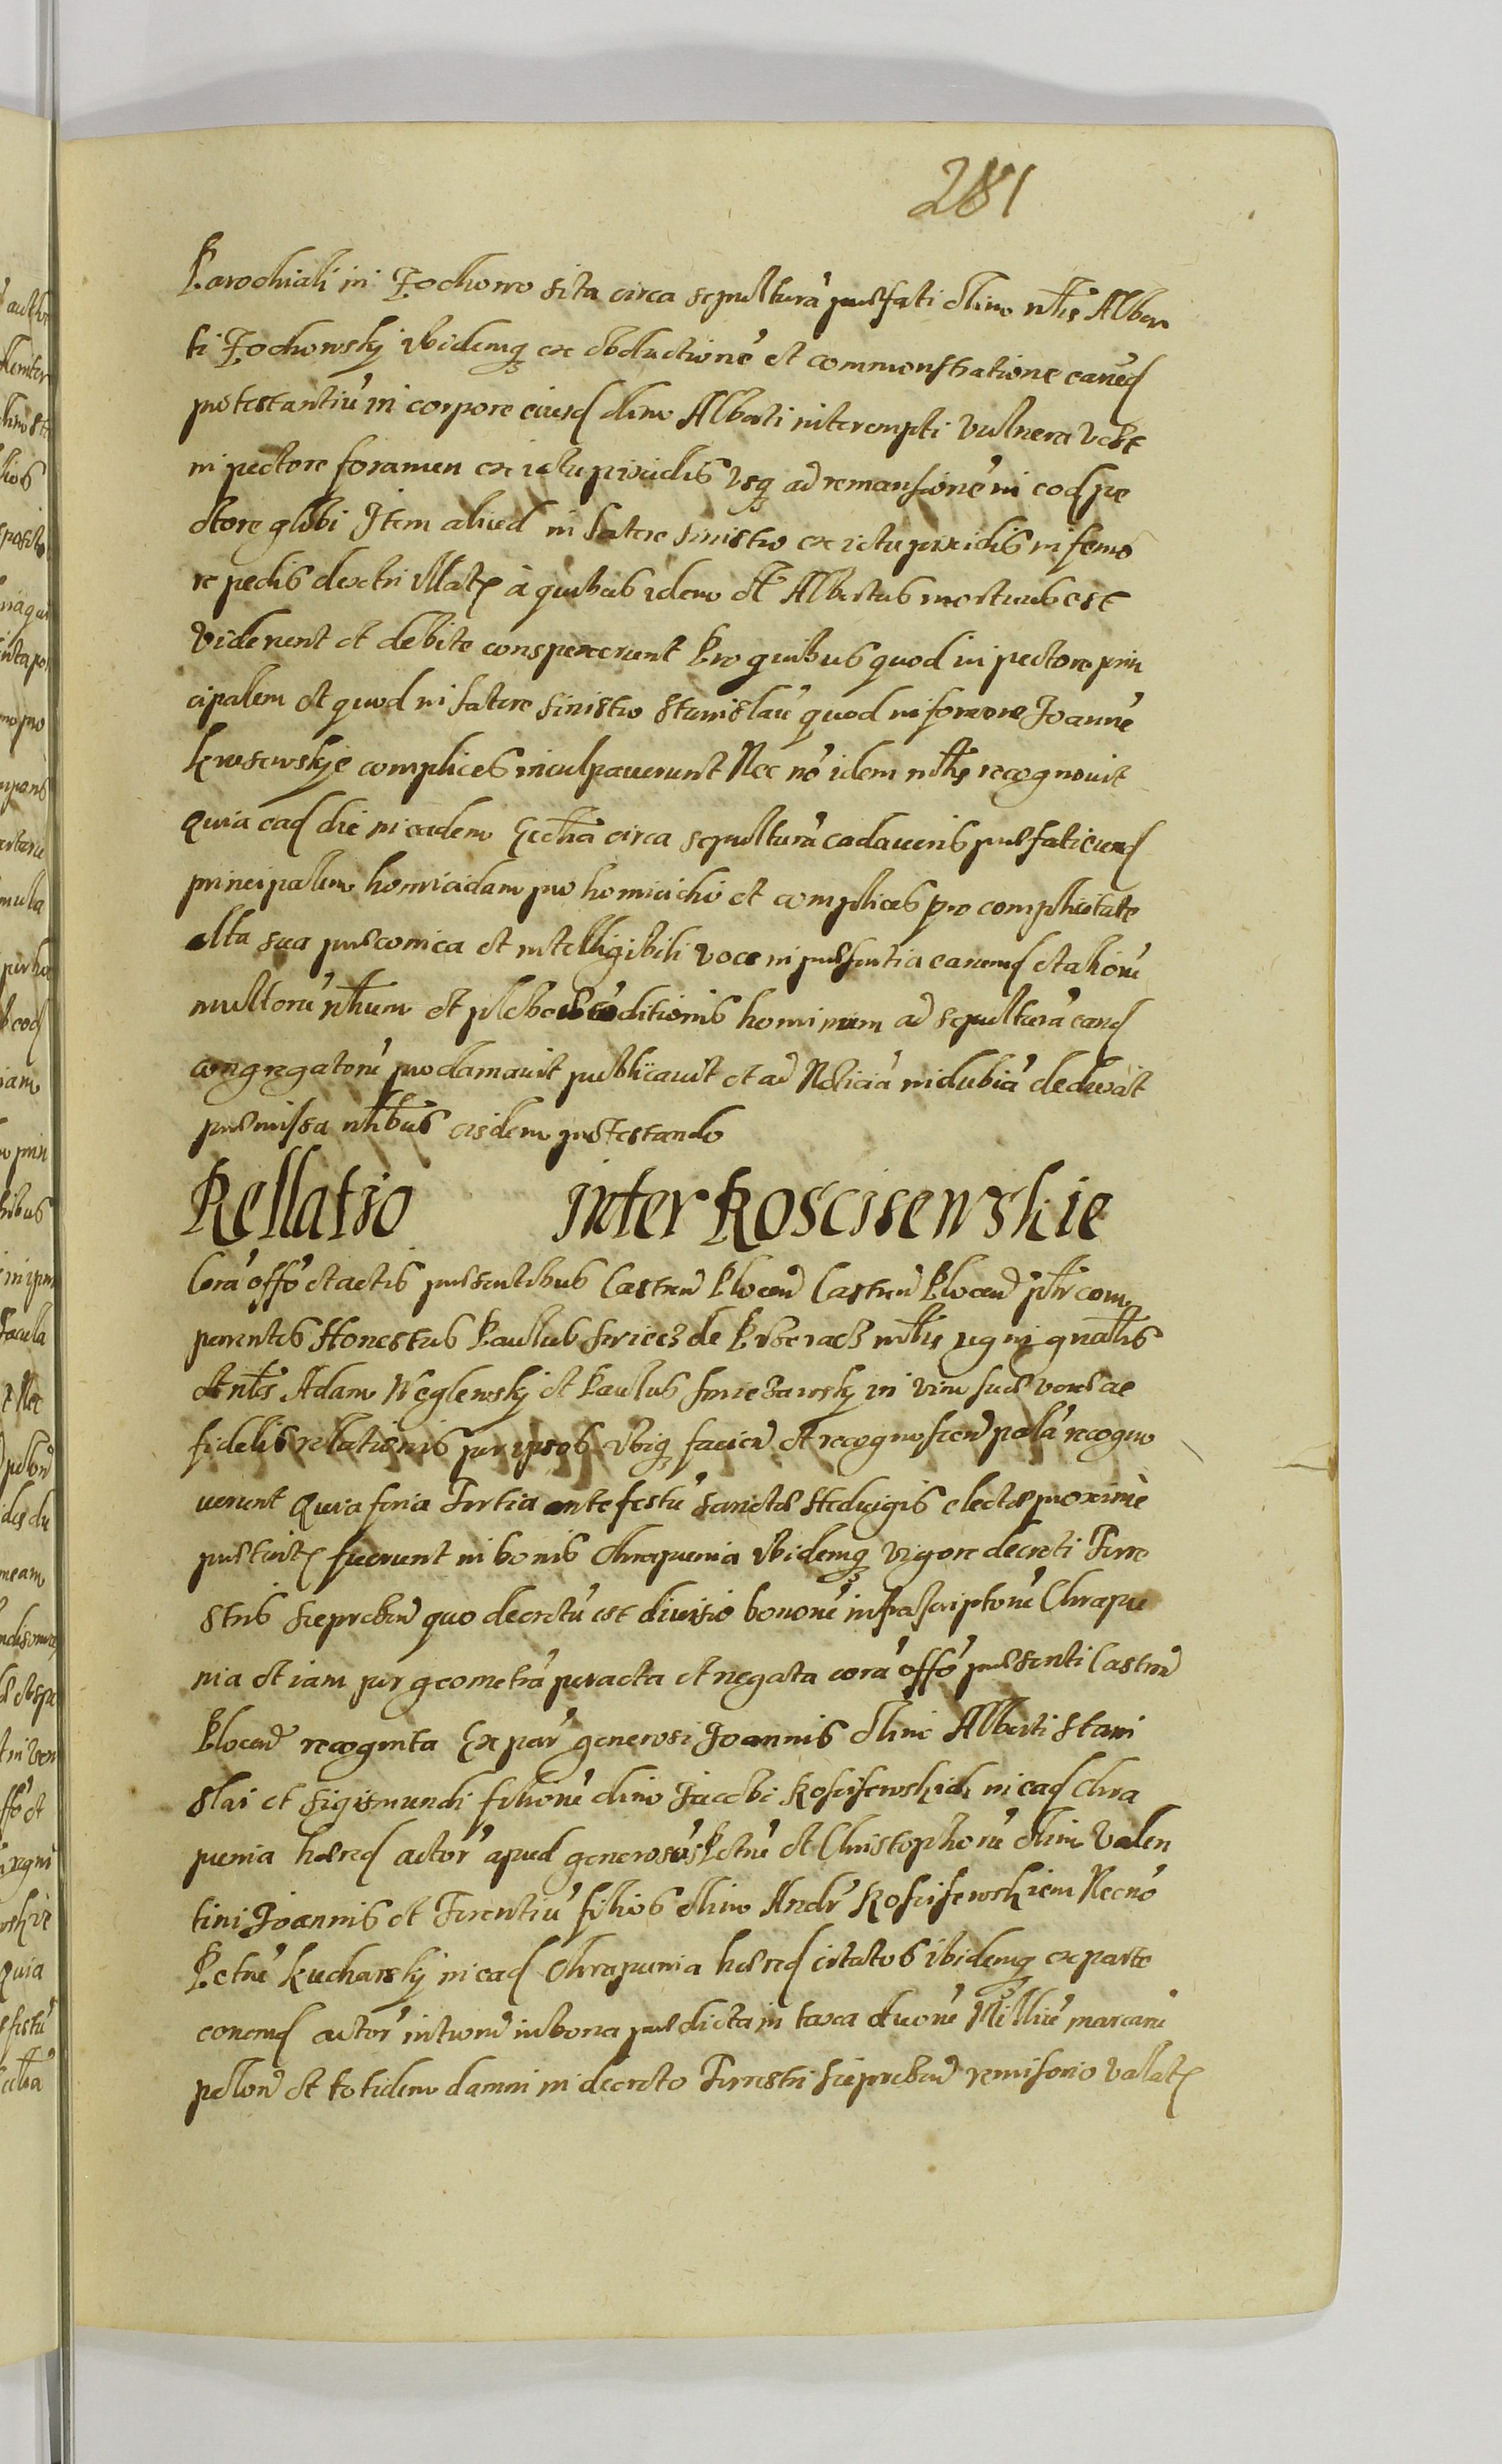 281
Parochiali in Zochowo sita circa sepulturā praefati olim nƚis Alber
ti Zochowskj ibidemq ex obductione et commonstratione earūd
protestantiū in corpore eiusd olim Alberti interempti vulnera
in pectore foramen ex ictu pixidis usq ad remansionē in eod pe
ctore globi Item aliud in latere sinistro ex ictu pixidis in femo
re pedis dextri illat à quibus idem Albertus mortuus est
viderunt et debite conspexerunt Pro quibus quod in pectore prin
cipalem et quod in latere sinistro Stanislaū quod in femore Joannē
complices inculpaverunt Nec nō idem recognovit
Quia ead die in eadem Eccƚia circa sepulturā cadaveris praefati eiusd
principalem homicidam pro homicidio et complices pro complicitate
alta sua praeconica et intelligibili voce in praesentia earumd et aliorū
multorū nƚium et plebeae cōditionis hominum ad sepulturā eand
congregatorū proclamavit publicavit et ad Noticiā indubiā deduxit
praemissa nƚibus eisdem protestando
Rellatio inter Koscisewskie
Corā offō et actis praesentibus Castren Plocen Castren Plocen com
parentes Honestus Paulus de mƚis regni gnaƚis
et nƚes Adam Weglewskj et Paulus in vim suae verae ac
fidelis relationis per ipsos ubiq facien et recognoscen palā recogno
verunt Quia feria Tertia ante festū Sanctae Hedvigis electae proximè
praeterit fuerunt in bonis Chraponia ibidemq vigore decreti Terre
stris Sieprcen quo decretū est divisio bonorū infrascriptorū Chrapu
nia et iam per geometrā peracta et negata corā offō praesenti Castren
Plocen recognita Ex par generosi Joannis olim Alberti Stani
slai et Sigismundi filiorū olim Jacobi in ead Chra
punia haered actor apud generosus Petrū et Christophorū olim Valen
tini Joannis et filios olim Andr Necnō
Petrū Kucharskj in ead Chrapunia haered citatos ibidemq ex parte
eorumd actor in bona praedicta in taxa duorū Milliū marcarū
polon et totidem damni in decreto Terrestri remisorio vallat